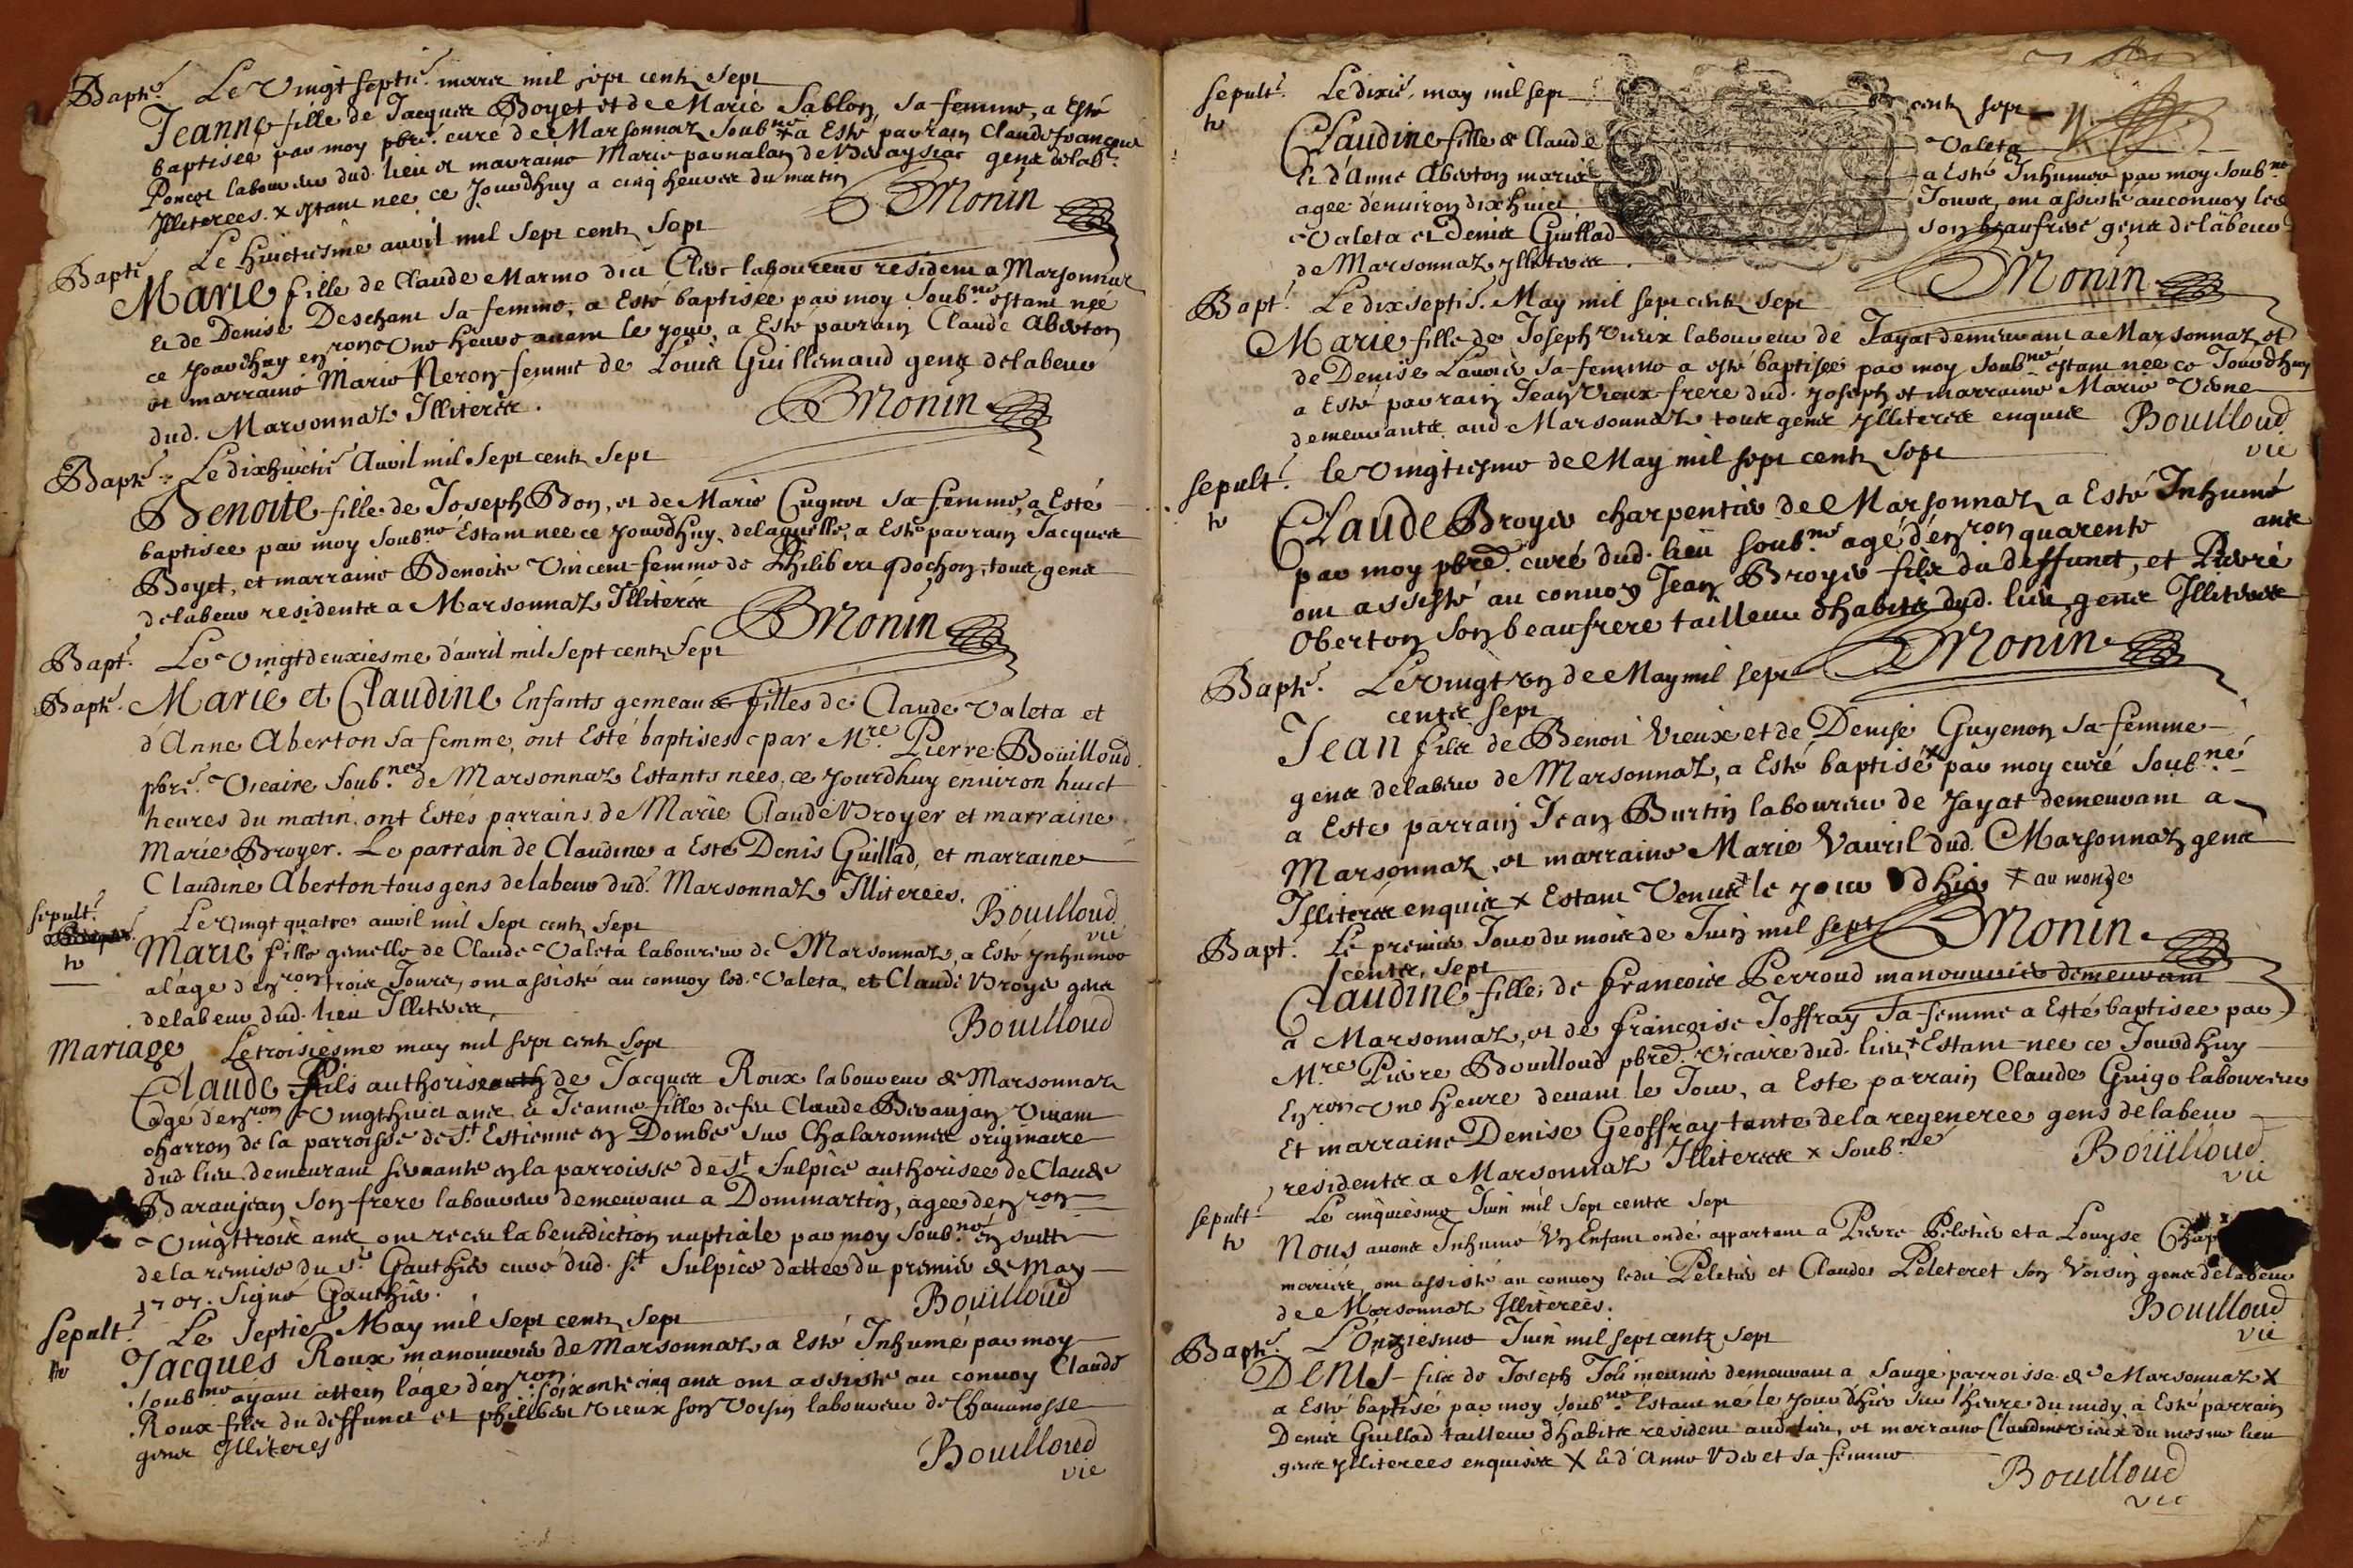 Bapt. Le Vingt septie. mars mil sept cents sept
Jeanne fille de Jacques Boyet et de Marie Sablon sa femme, a esté
baptisée par moy pbre. curé de Marsonnaz soub.né x a esté parrain Claude françois
Poncet laboureur dud. lieu et marraine Marie pavnalan de gens delab.
Illiterees. x estant nee ce jourdhuy a cinq heures du matin
Monin
Bapt Le huictiesme avril mil sept cents sept
Marie fille de Claude Marmo dit Clerc laboureur resident a Marsonnaz
et de Denise Deschant sa femme, a esté baptisée par moy soub.né estant née
ce jourdhuy en.ron une heure avant le jour, a esté parrain Claude Aberton
et marraine Marie Neron femme de Louis Guillemaud gens delabeur
dud. Marsonnaz Illiteres.
Monin
Bapt. Le dixhuictie Avril mil sept cents sept
Benoite fille de Joseph Bon, et de Marie Cugnet sa femme, a esté
baptisee par moy soub.né Estant nee ce jourdhuy, delaquelle, a esté parrain Jacques
Boyet, et marraine Benoite Vincent femme de Philibert Bochon, tous gens
delabeur residents a Marsonnaz Illiteres
Monin
Bapt. Le Vingtdeuxiesme d'avril mil sept cents sept
Bapt. Marie et Claudine Enfants gemeaux filles de Claude Valeta et
d'Anne Aberton sa femme, ont Esté baptises par M.re Pierre Boüilloud
pbre. Vicaire soub.né de Marsonnaz Estants nees, ce jourdhuy environ huict
heures du matin, ont Estés parrains de Marie Claude Broyer et marraine
Marie Broyer. Le parrain de Claudine a Esté Denis Guillad, et marraine
Claudine Aberton tous gens delabeur dud. Marsonnaz Illiterees.
Boüilloud
vic
sepult. Le Vingt quatre avril mil sept cents sept
Marie fille gemelle de Claude Valeta laboureur de Marsonnaz, a Esté Inhumee
alâge d'en.ron trois Jours, ont assisté au convoy led. Valeta, et Claude Broyer gens
delabeur dud. lieu Illiteres,
Bouilloud
Mariage Le troisiesme may mil sept cents sept
Claude fils authorise de Jacques Roux laboureur de Marsonnaz
age d'en.ron Vingthuict ans et Jeanne fille de feu Claude Bevaujan Vivant
charron de la parroisse de S.t Estienne en Dombe sur Chalaronne originaire
dud lieu demeurant servante en la parroisse de S.t Sulpice authorisee de Claude
Baraujean son frere laboureur demeurant a Dommartin, agee d'en.ron
Vingttrois ans ont receu la benediction nuptiale par moy soub.né en suitte
de la remise du S.r Gauthier curé dud. S.t Sulpice dattée du premier de May
1707. Signé Gauthier.
Bouilloud
Sepult. Le Septie. May mil sept cents sept
Jacques Roux manouvrier de Marsonnaz a Esté Inhumé par moy
soub.né ayant attein lage d'en.ron soixante cinq ans ont assisté au convoy Claude
Roux fils du deffunct et philibert Vieux son Voisin laboureur de Chavanosse
gens Illiteres
Bouilloud
vic
Sepult. Le dixie. may mil sept cents sept
Claudine fille de Claude Valeta
et d'Anne Aberton mariés a Esté Inhumee par moy soub.né
agee denviron dixhuict Jours, ont assisté au convoy led
Valeta et Denis Guillad son beaufrere gens delabeur
de Marsonnaz Illiteres.
Monin
Bapt. Le dixseptie. May mil sept cents sept
Marie fille de Joseph Vieux laboureur de Jayat demeurant a Marsonnaz, et
de Denise Lauvie sa femme a esté baptisée par moy soub.né estant nee ce Jourdhuy
a Esté parrain Jean Vieux frere dud. Joseph et marraine Marie Verne
demeurants aud Marsonnaz tous gens Illiteres enquis
Bouilloud
vic
sepult. le Vingtiesme de May mil sept cents sept
Claude Broyer charpentier de Marsonnaz a Esté Inhumé
par moy pbre. curé dud. lieu soub.né agé d'en.ron quarente ans
ont assisté au convoy Jean Broyer fils du deffunct, et Pierre
Oberton son beaufrere tailleur dhabits dud. lieu, gens Illiteres
Monin
Bapt. Le Vingt un de May mil sept
cents sept
Jean fils de Benoit Vieux et de Denise Guyenon sa femme
gens delabeur de Marsonnaz, a Esté baptisé x par moy curé soub.né
a Este parrain Jean Burtin laboureur de Jayat demeurant a
Marsonnaz, et marraine Marie Vauril dud. Marsonnaz gens
Illiteres enquis x Estant Venu x le jour d'hier x au monde
Monin
Bapt. Le premier Jour du mois de Juin mil sept
cents, sept
Claudine fille de francois Perroud manouvrier demeurant
a Marsonnaz, et de francoise Joffray sa femme a Esté baptisee par
M.re Pierre Bouilloud pbre. Vicaire dud. lieu, x Estant nee ce Jourdhuy
En.ron une heure devant le Jour, a Este parrain Claude Guigo laboureur
Et marraine Denise Geoffray tante de la regeneree gens delabeur
residents a Marsonnaz Illiteres x soub.né
Boüilloud
vic
sepult. Le cinquiesme Juin mil sept cents sept
Nous avons Inhumé Un Enfant ondé appartent a Pierre Peletier et a Louyse
mariés, ont assisté au convoy ledit Peletier et Claude Peleteret son Voisin gens delabeur
de Marsonnaz Illiterees.
Bouilloud
vic
Bapt. L'Onziesme Juin mil sept cents sept
Denis fils de Joseph Joli meunier demeurant a Sauge parroisse de Marsonnaz x
a Esté baptisé par moy soub.né Estant né le jour d'hier sur lheure du midy, a Esté parrain
Denis Guillad tailleur d'habits resident aud lieu, et marraine Claudine Vieux du mesme lieu
gens Illiterees enquis x et d'Anne Divet sa femme
Bouilloud
vic